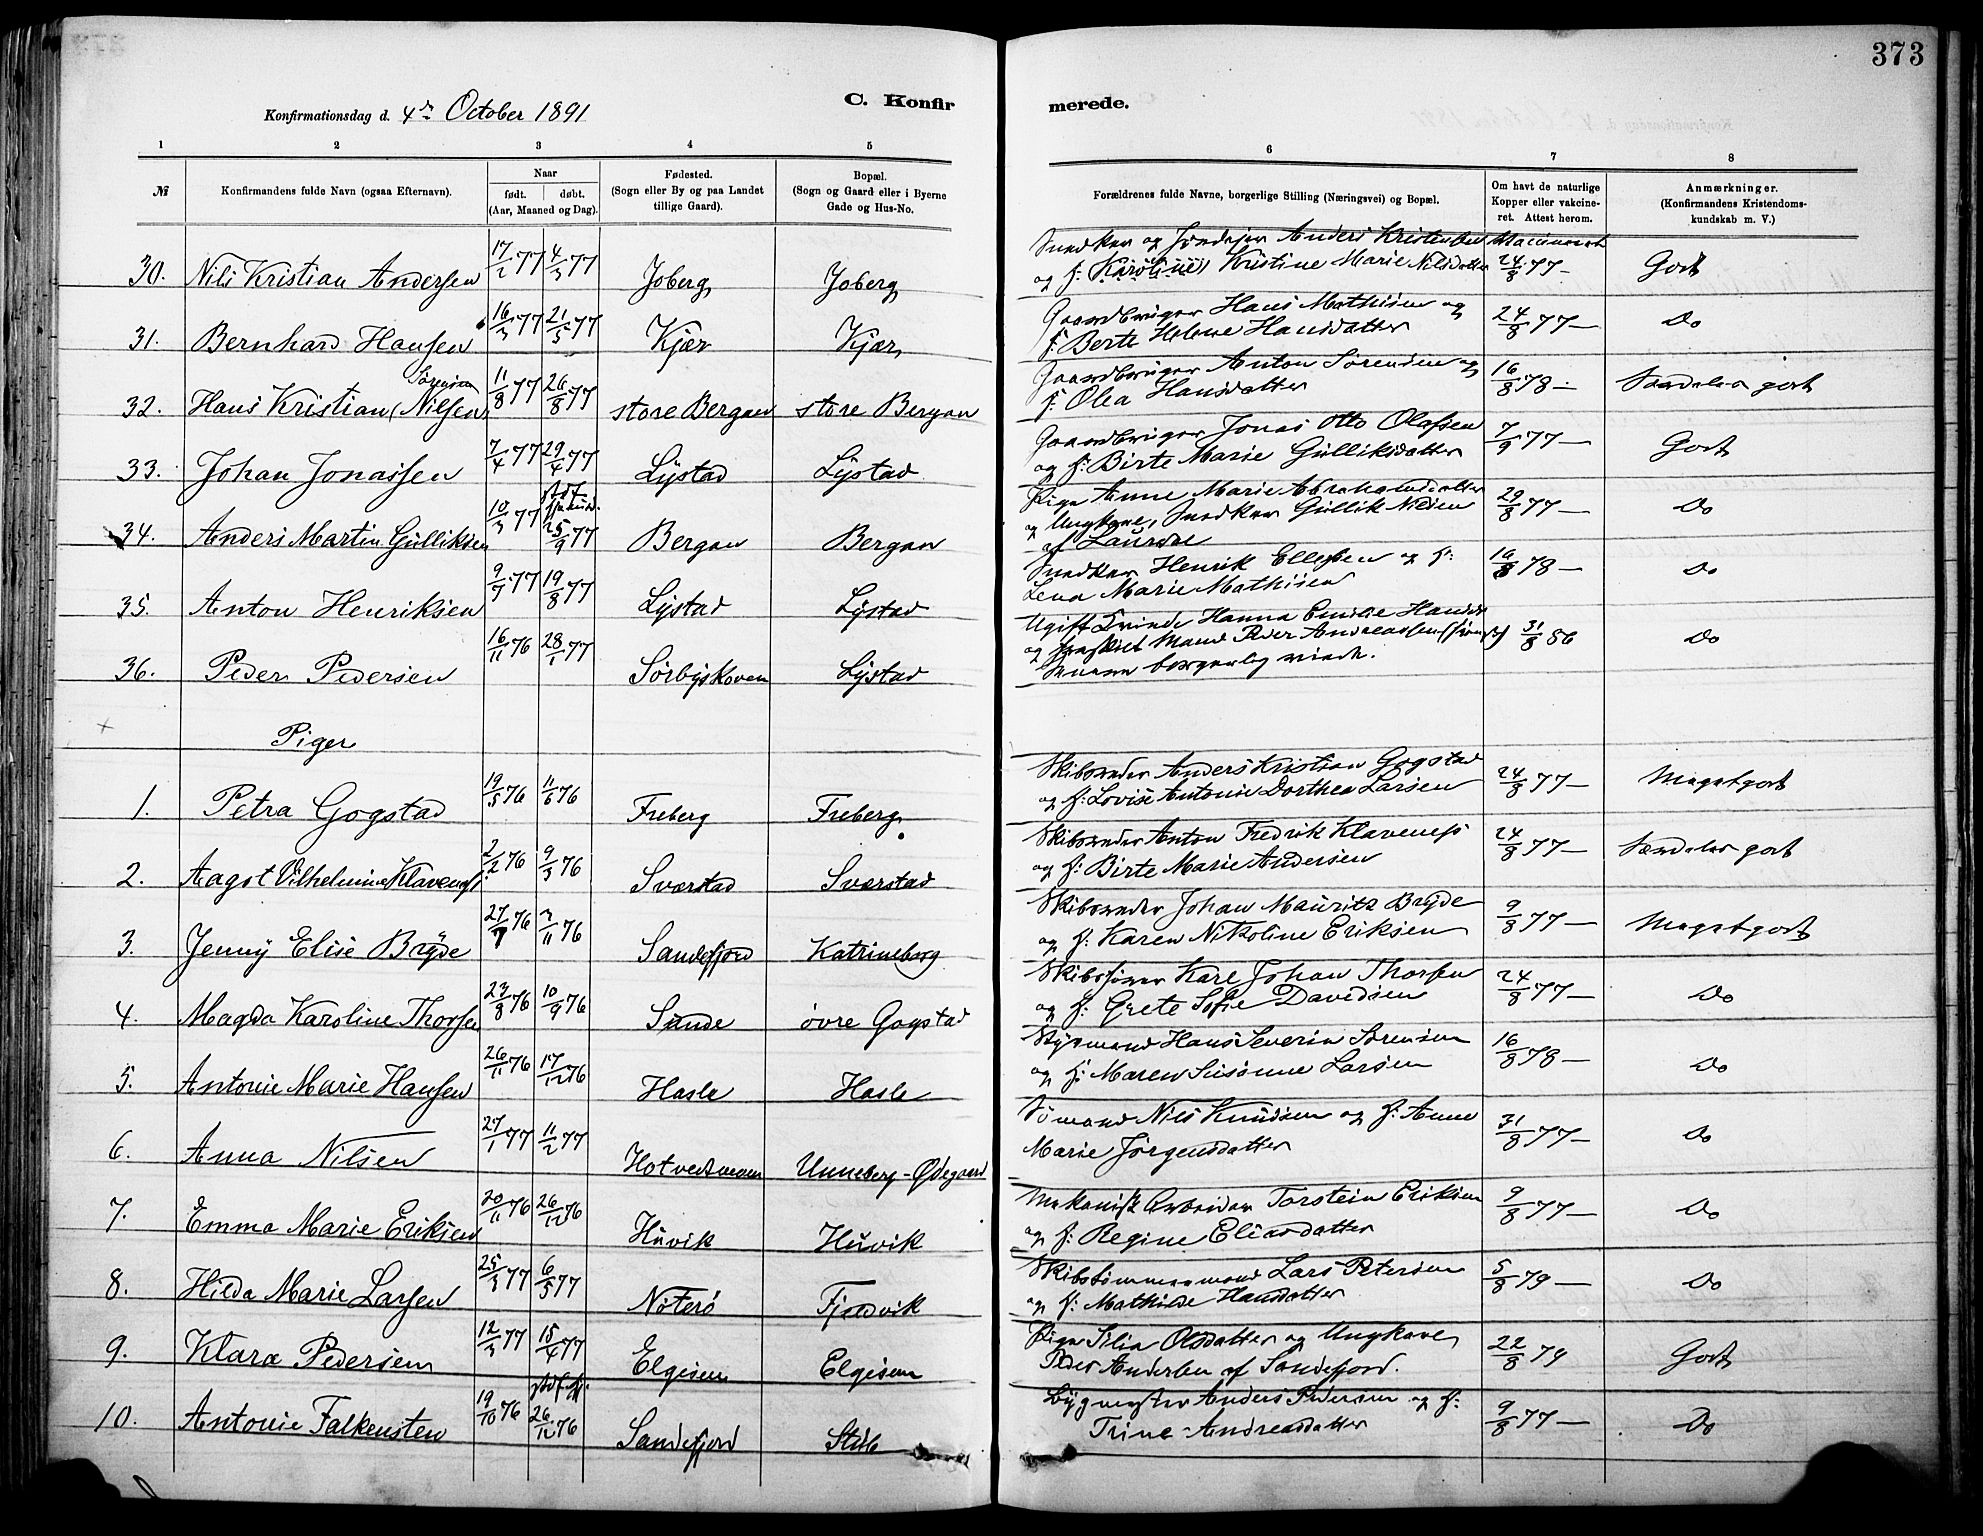 373
C. Konfirmerede.
Konfirmationsdag d. 4de October 1891
1 2 3 4 5 6 7 8
№ Konfirmandens fulde Navn (ogsaa Efternavn). Naar født. døbt. (Aar, Maaned og Dag). Fødested. (Sogn eller By og paa Landet tillige Gaard). Bopæl. (Sogn og Gaard eller i Byerne Gade og Hus-No. Forældrenes fulde Navne, borgerlige Stilling (Næringsvei) og Bopæl. Om havt de naturlige Kopper eller vakcineret. Attest herom. Anmærkninger. (Konfirmandens Kristendomskundskab m. V.)
30. Nils Kristian Andersen 17/2 77 4/3 77 Joberg Joberg Snedker og Anders Kristensen og f: Karoline Kristine Marie Nilsdatter Vaccineret 24/8 77 – Godt
31. Bernhard Hansen 16/3 77 21/5 77 Kjær Kjær Gaardbruger Hans Mathisen og f: Berte Helene Hansdatter 24/8 77 – Do
32. Hans Kristian (Nilsen Sørensen 11/8 77 26/8 77 store Bergan store Bergan Gaardbruger Anton Sørensen og f: Olea Hansdatter 16/8 78 – Særdeles godt
33. Johan Jonassen 7/4 77 29/4 77 Lystad Lystad Gaardbruger Jonas Otto Olafsen og f: Birte Marie Gulliksdatter 7/9 77 – Godt
34. Anders Martin Gulliksen 10/3 77 25/9 77 Bergan Bergan Pige Anne Marie Abrahamsdatter og Ungkarl, Snedker Gullik Nilsen af Laurdal 29/8 77 – Do
35. Anton Henriksen 9/7 77 19/8 77 Lystad Lystad Snedker Henrik Ellefsen og f: Lena Marie Mathisen 16/8 78 – Do
36. Peder Pedersen 16/11 76 28/1 77 Sörbyskoven Lystad Ugift Kvinde Hanna Emilie Hansdr og fraskilt Mand Peder Andreassen borgerlig viede. 31/8 86 Do
Piger
1. Petra Gogstad 19/5 76 11/6 76 Freberg Freberg Skibsreder Anders Kristian Gogstad og f: Lovise Antonie Dorthea Larsen 24/8 77 – Megetgodt
2. Aagot Vilhelmine Klavenes 2/2 76 9/3 76 Sverstad Sverstad Skibsreder Anton Fredrik Klavenes og f: Birte Marie Andersen 24/8 77 – Særdeles godt
3. Jenny Elise Bryde 27/7 76 7/11 76 Sandefjord Katrineborg Skibsreder Johan Mauritz Bryde og f: Karen Nikoline Eriksen 9/8 77 – Megetgodt
4. Magda Karoline Thorsen 23/8 76 10/9 76 Sunde övre Gogstad Skibsfører Karl Johan Thorsen og f: Grete Sofie Davidsen 24/8 77 – Do
5. Antonie Marie Hansen 26/11 76 17/12 76 Hasle Hasle Styrmand Hans Severin Sørensen og f: Maren Susanne Larsen 16/8 78 – Do
6. Anna Nilsen 27/1 77 11/2 77 Unneberg-Ödegaard Sömand Nils Knudsen og f: Anne Marie Jörgensdatter 31/8 77 – Do
7. Emma Marie Eriksen 20/11 76 26/12 76 Huvik Huvik Mekanisk Arbeider Torstein Eriksen og f: Regine Eliasdatter 9/8 77 – Do
8. Hilda Marie Larsen 25/3 77 6/5 77 Nöterö Fjeldvik Skibstömmermand Lars Petersen og f: Mathilde Hansdatter 5/8 79 – Do
9. Klara Pedersen 12/3 77 15/4 77 Elgesem Elgesem Pige Silia Olsdatter og Ungkarl, Peder Andersen af Sandefjord. 22/8 79 Godt
10. Antonie Falkensten 19/10 76 26/12 76 Sandefjord Stub Bygmester Anders Pedersen og f: Trine Andreasdatter 9/8 77 – Do